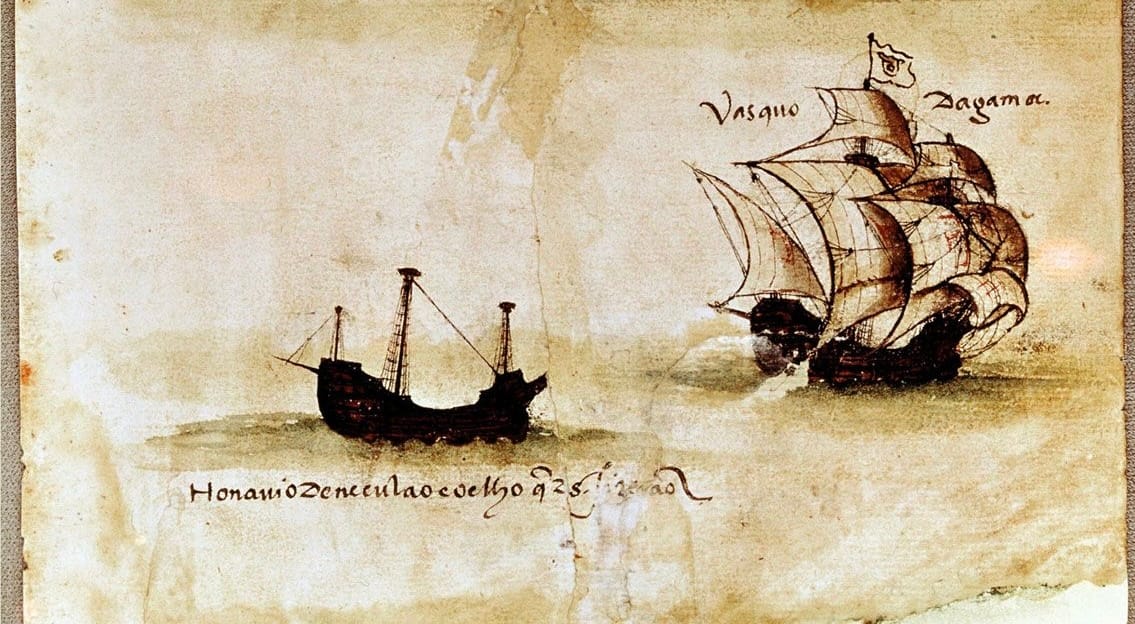 Vasquo Dagama.
Honavio Deneculao coelho q̃